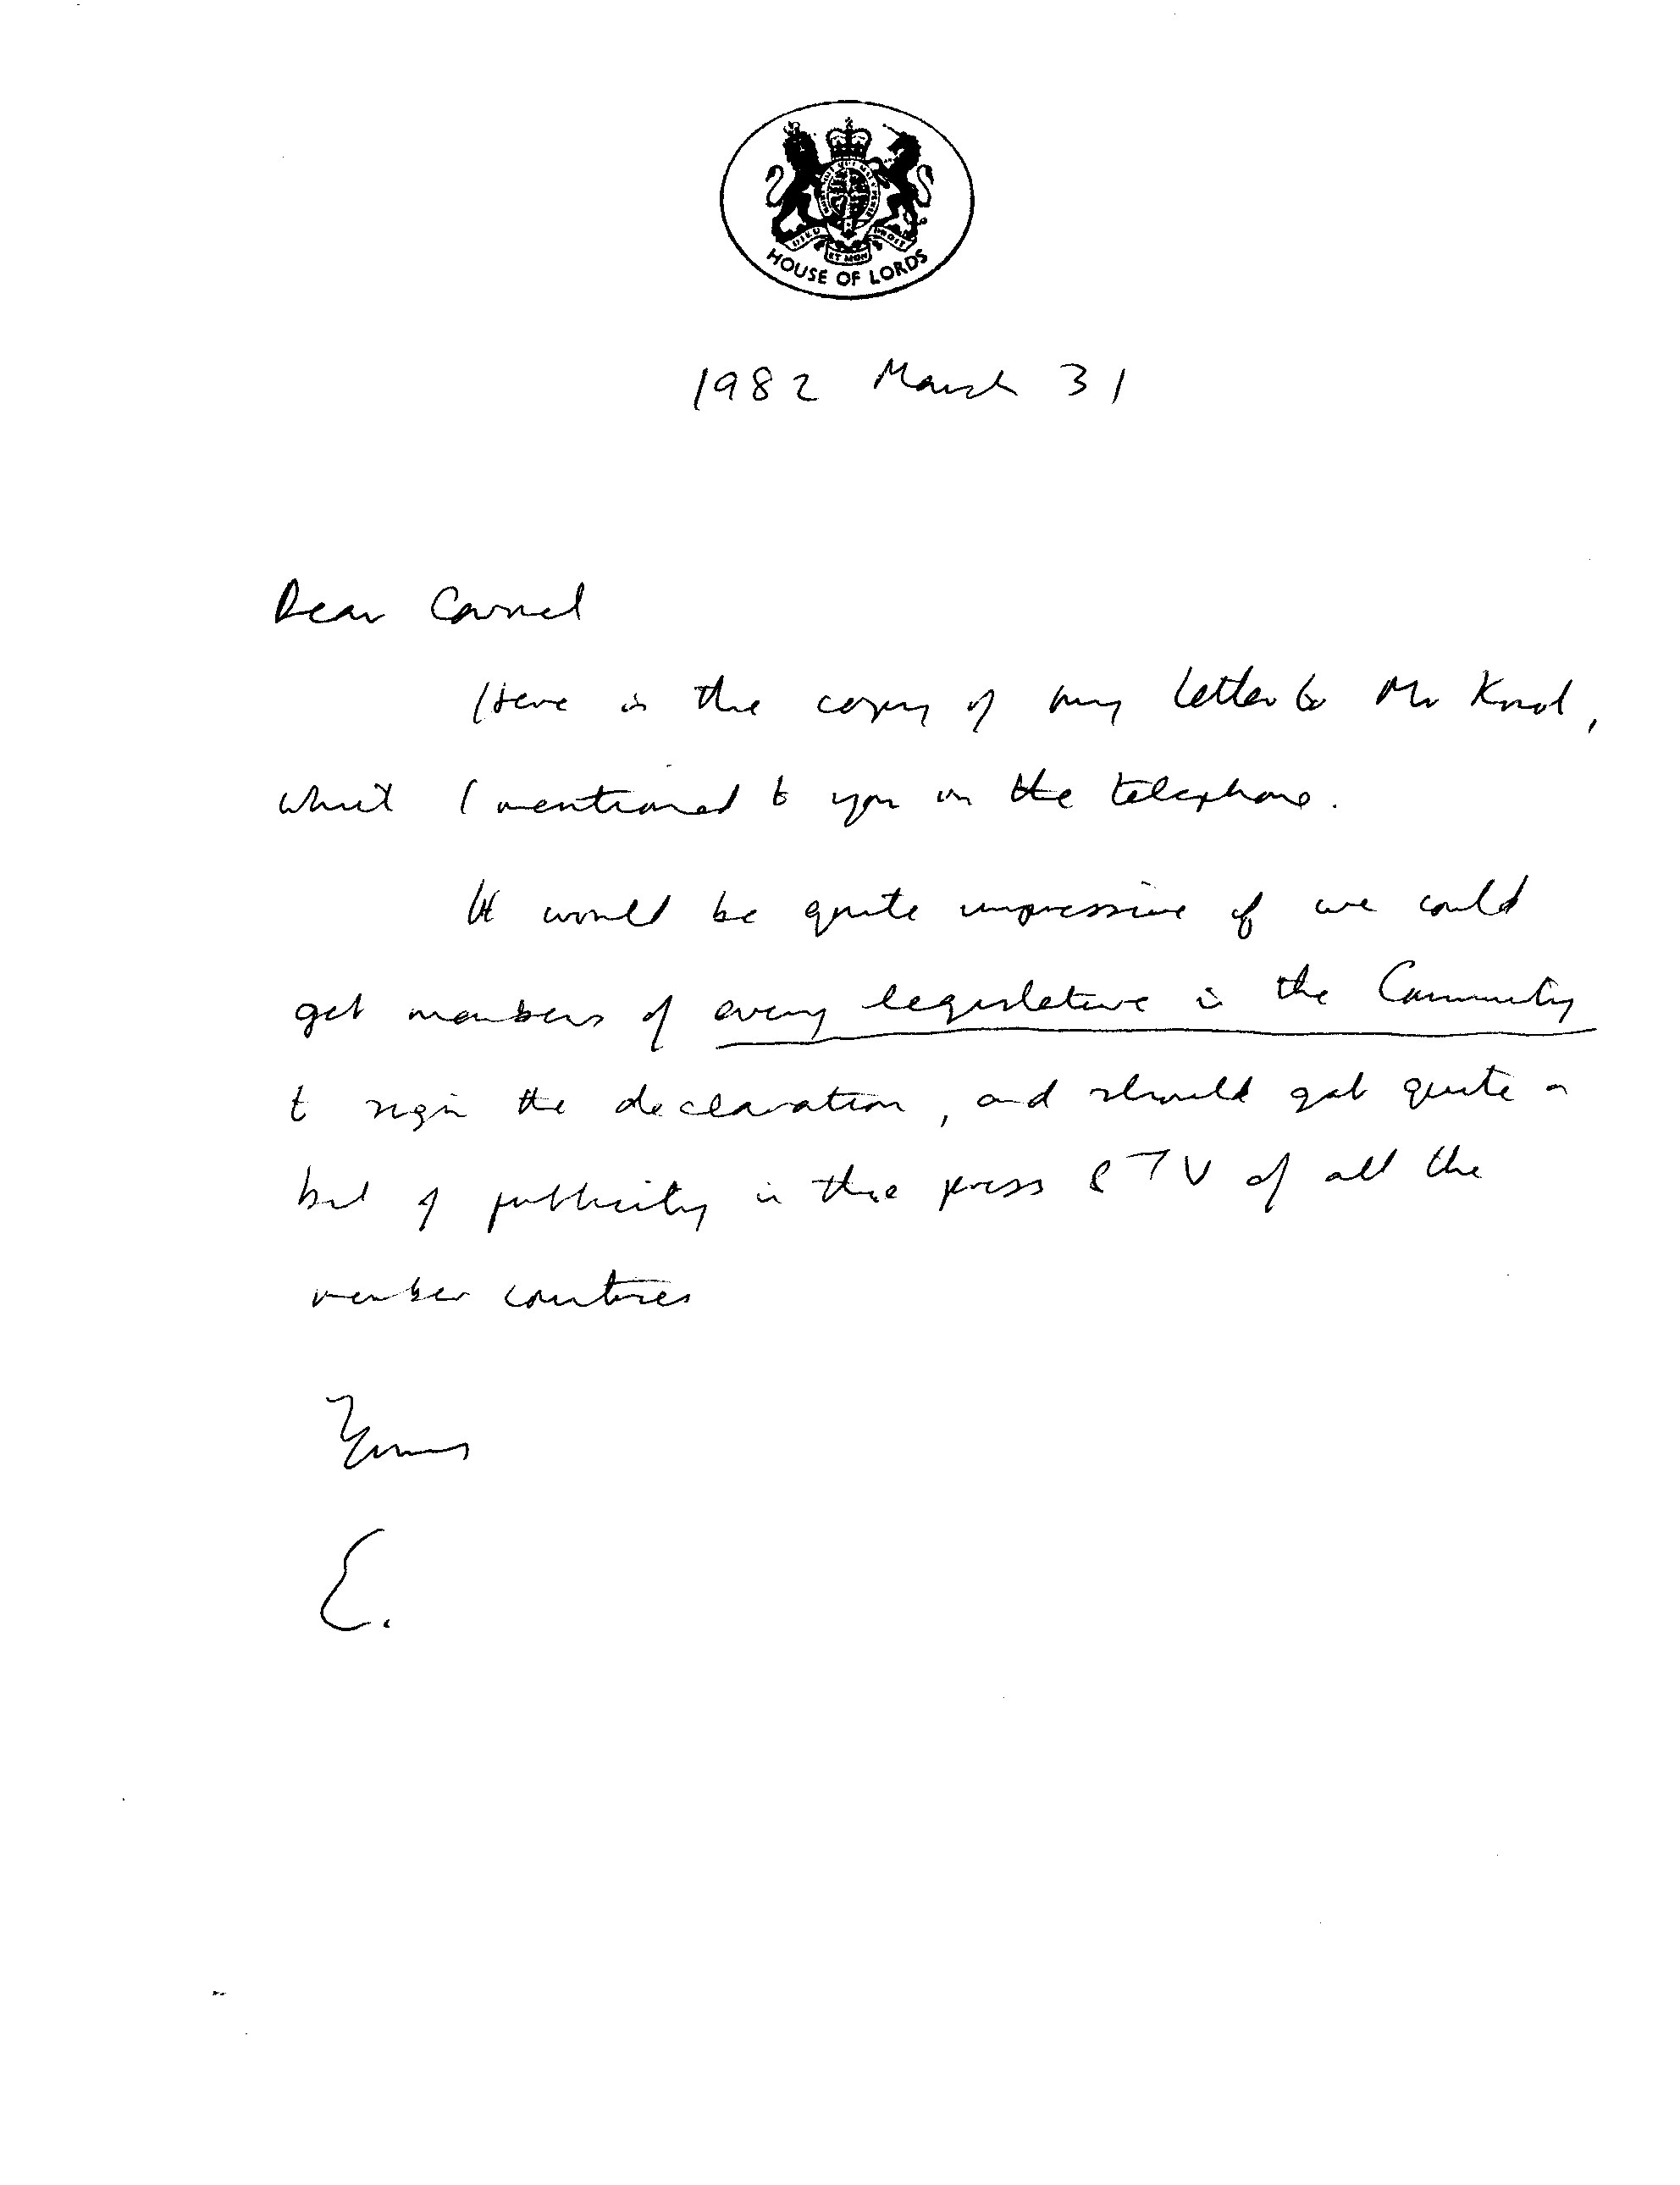 HOUSE OF LORDS
1982 March 31
Dear Carmel
Here is the copy of my letter to Mr
which I mentioned to you on the telephone.
It would be quite impressive if we could
get members of every legislature in the Community
to sign the declaration, and should get quite a
bit of publicity in the press & TV of all the
member countries
Yours
E.